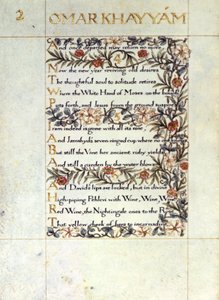 2 OMAR KHAYYÁM
And once departed may return no more
Now the new year reviving old desires
The thoughtful soul to solitude retires
Where the White Hand of Moses on the bough
Puts forth, and Jesus from the ground
Iram indeed is gone with all its rose,
And Jamshyd's seven ringed cup where no
But still the Vine her ancient ruby
And still a garden by the water blows
And David's lips are locked, but in divine
High piping Pehlevi with Wine, Wine, W
Red Wine, the Nightingale cries to the R
That yellow cheek of hers to incarnadine